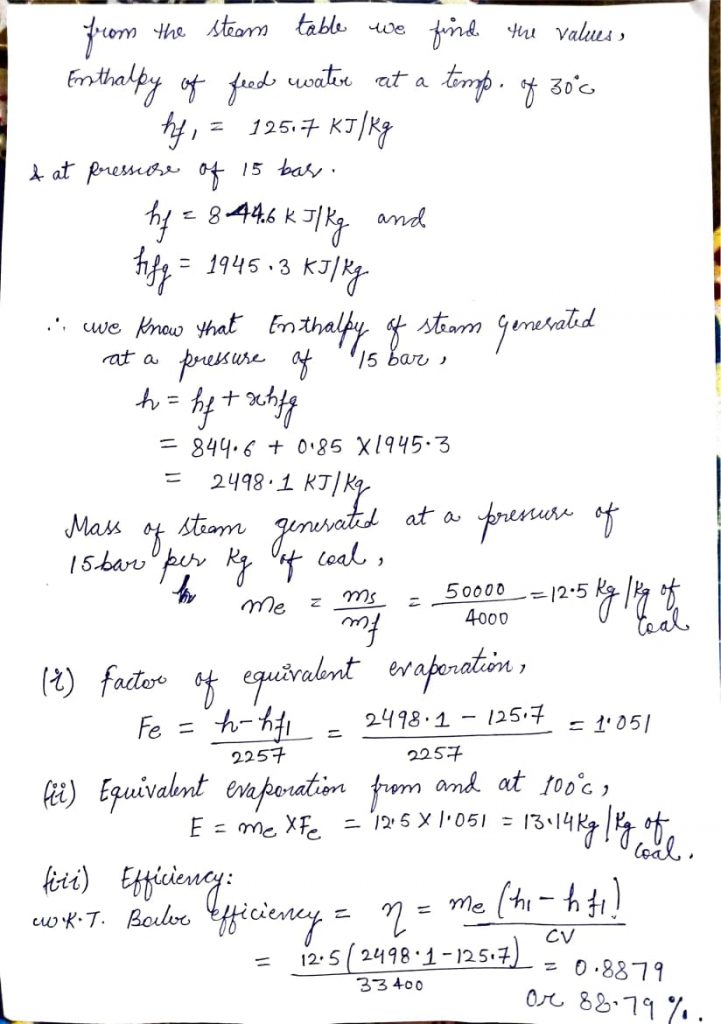 from the steam table we find the values,
Enthalpy of feed water at a temp. of 30°c
hf₁ = 125.7 KJ/Kg
& at pressure of 15 bar.
hf = 844.6 K J/Kg and
hfg = 1945.3 KJ/Kg
∴ we know that Enthalpy of steam generated
at a pressure of 15 bar,
h = hf + xhfg
= 844.6 + 0.85 X1945.3
= 2498.1 KJ/Kg
Mass of steam generated at a pressure of
15bar per Kg of coal,
me = ms/mf = 50000/4000 = 12.5 Kg/Kg of coal
(i) factor of equivalent evaporation,
Fe = h-hf₁/2257 = 2498.1 - 125.7/2257 = 1.051
(ii) Equivalent evaporation from and at 100°c,
E = me XFe = 12.5 X 1.051 = 13.14Kg/Kg of coal.
(iii) Efficiency:
w.K.T. Boiler efficiency = η = me (h₁ - hf₁)/CV
= 12.5(2498.1-125.7)/33400 = 0.8879
or 88.79 %.